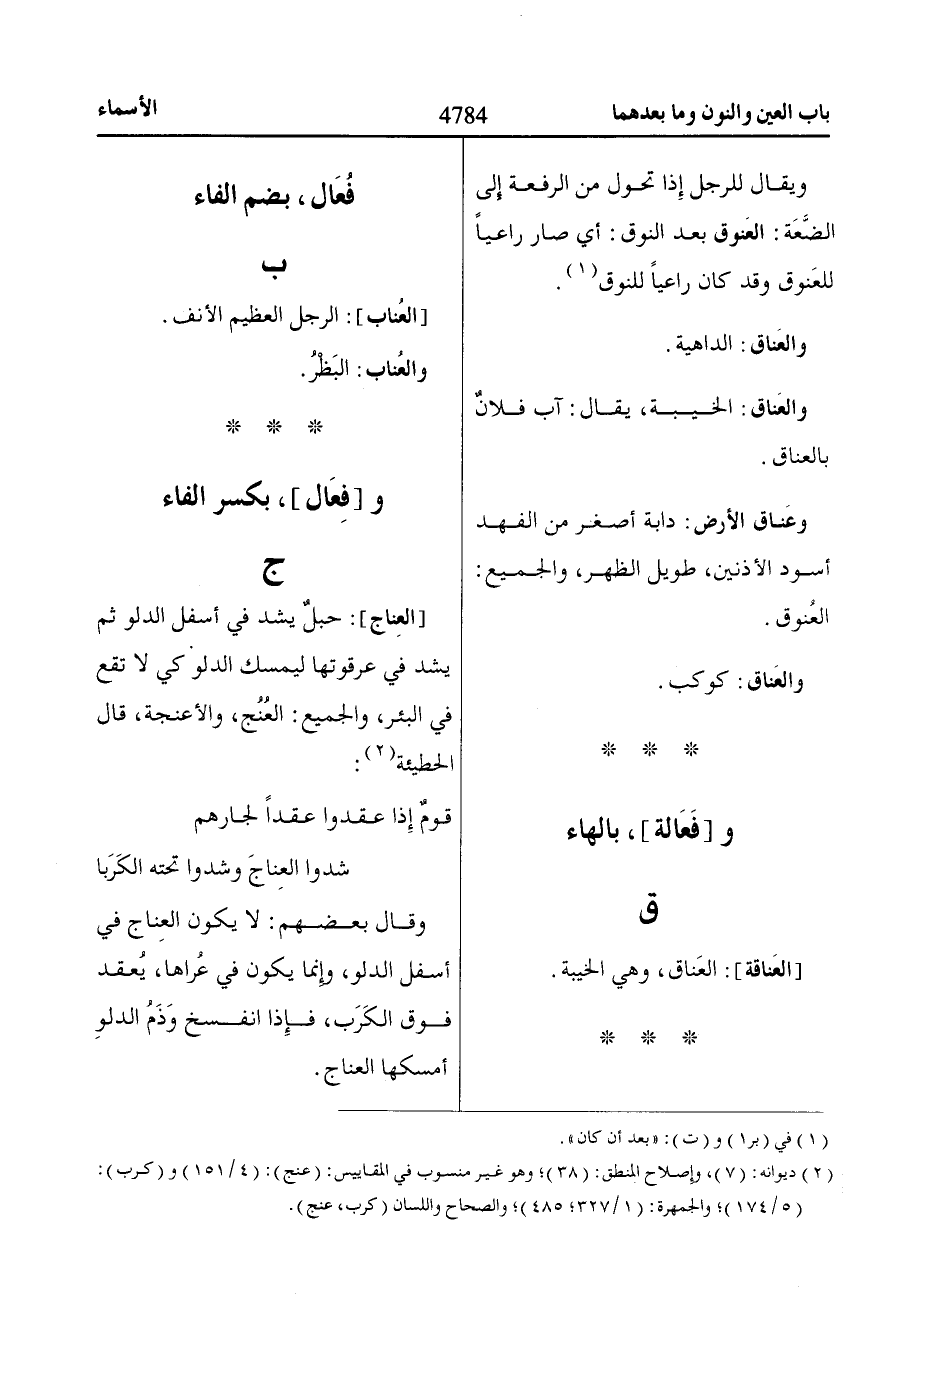 باب العين والنون وما بعدهما
4784
الأسماء
ويقال للرجل إذا تحول من الرفعة إلى
الضَّعَة: العَنوق بعد النوق: أي صار راعياً
للعَنوق وقد كان راعياً للنوق(١).
والعَناق: الداهية.
والعَناق: الخيبة، يقال: آب فلانٌ
بالعناق.
وعَناق الأرض: دابة أصغر من الفهد
أسود الأذنين، طويل الظهر، والجميع:
العُنوق.
والعَناق: كوكب.
* * *
و [فَعَالة]، بالهاء
ق
[العَناقة]: العَناق، وهي الخيبة.
* * *
فُعَال، بضم الفاء
ب
[العُناب]: الرجل العظيم الأنف.
والعُناب: البَظْرُ.
* * *
و [فِعَال]، بكسر الفاء
ج
[العِناج]: حبلٌ يشد في أسفل الدلو ثم
يشد في عرقوتها ليمسك الدلو كي لا تقع
في البئر، والجميع: العُنُج، والأعنجة، قال
الحطيئة(٢):
قومٌ إذا عقدوا عقداً لجارهم
شدوا العِناجَ وشدوا تحته الكَرَبا
وقال بعضهم: لا يكون العِناج في
أسفل الدلو، وإنما يكون في عُراها، يُعقد
فوق الكَرَب، فإذا انفسخ وَذَمُ الدلوِ
أمسكها العِناج.
(١) في (بر١) و(ت): «بعد أن كان».
(٢) ديوانه: (٧)، وإصلاح المنطق: (٣٨)؛ وهو غير منسوب في المقاييس: (عنج): (٤/١٥١) و(كرب):
(٥/١٧٤)؛ والجمهرة: (١/٣٢٧؛ ٤٨٥)؛ والصحاح واللسان (كرب، عنج).